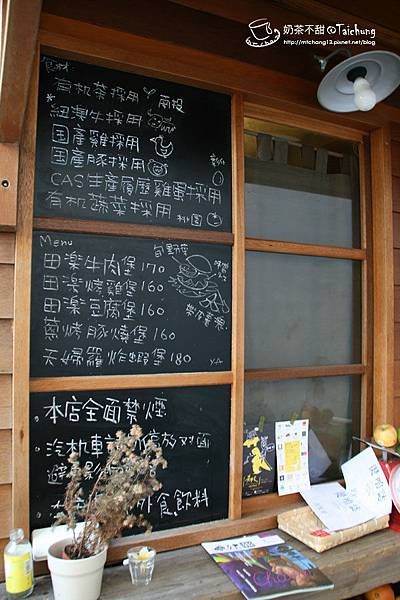 奶茶不甜@Taichung
http://mtchang13.pixnet.net/blog
食材
有机菜採用 南投
紐澳牛採用
国產雞採用
国產豚採用
CAS生產履歷雞蛋採用 彰化
有机蔬菜採用 桃園
Menu
田楽牛肉堡 170
田楽烤雞堡 160
田楽豆腐堡 160
蔥烤豚燒堡 160
天婦羅炸蝦堡 180
本店全面禁煙
汽机車請 停放对面
避
本店 外食飲料